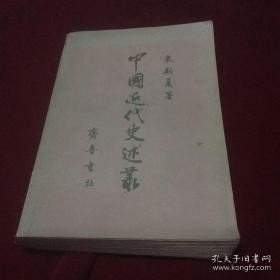 来新夏著
中國近代史述叢
齊魯書社
孔夫子旧书网